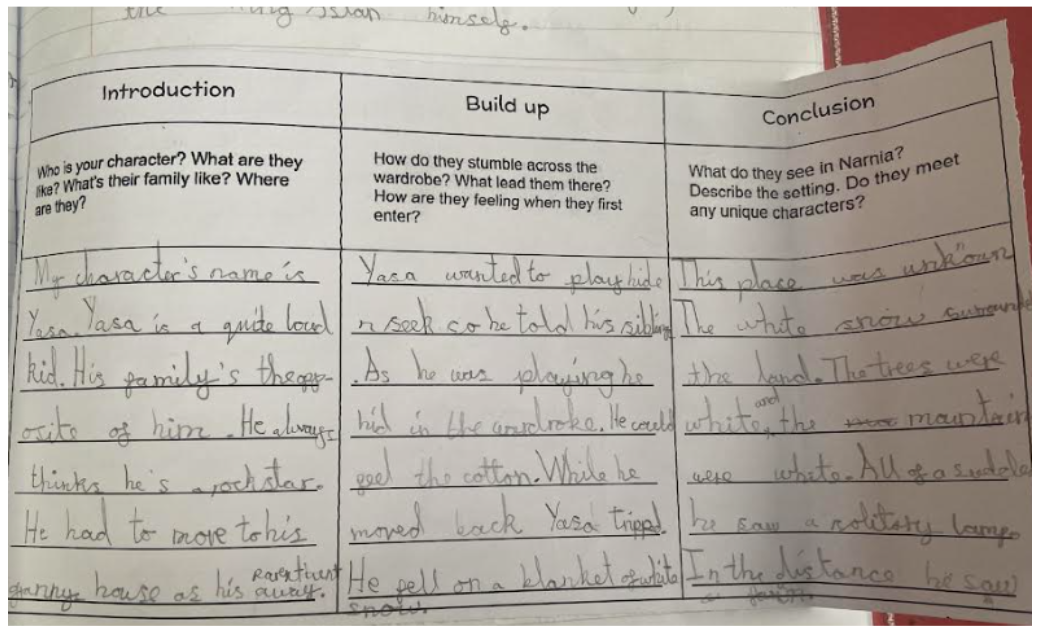 the himself.
Introduction
Who is your character? What are they
like? What's their family like? Where
are they?
My character's name is
Yasa. Yasa is a quite loud
kid. His family's the opp-
osite of him. He always
thinks he's a rockstar.
He had to move to his
granny house as his Parent went
away.
Build up
How do they stumble across the
wardrobe? What lead them there?
How are they feeling when they first
enter?
Yasa wanted to play hide
n seek so he told his sibling
. As he was playing he
hid in the wardroke. He could
feel the cotton. While he
moved back Yasa tripped.
He fell on a blanket of white
snow.
Conclusion
What do they see in Narnia?
Describe the setting. Do they meet
any unique characters?
This place was unknown
The white snow surrounded
the land. The trees were
white, and the mountain
were white. All of a sudden
he saw a solitory lamp.
In the distance he saw
a faun.